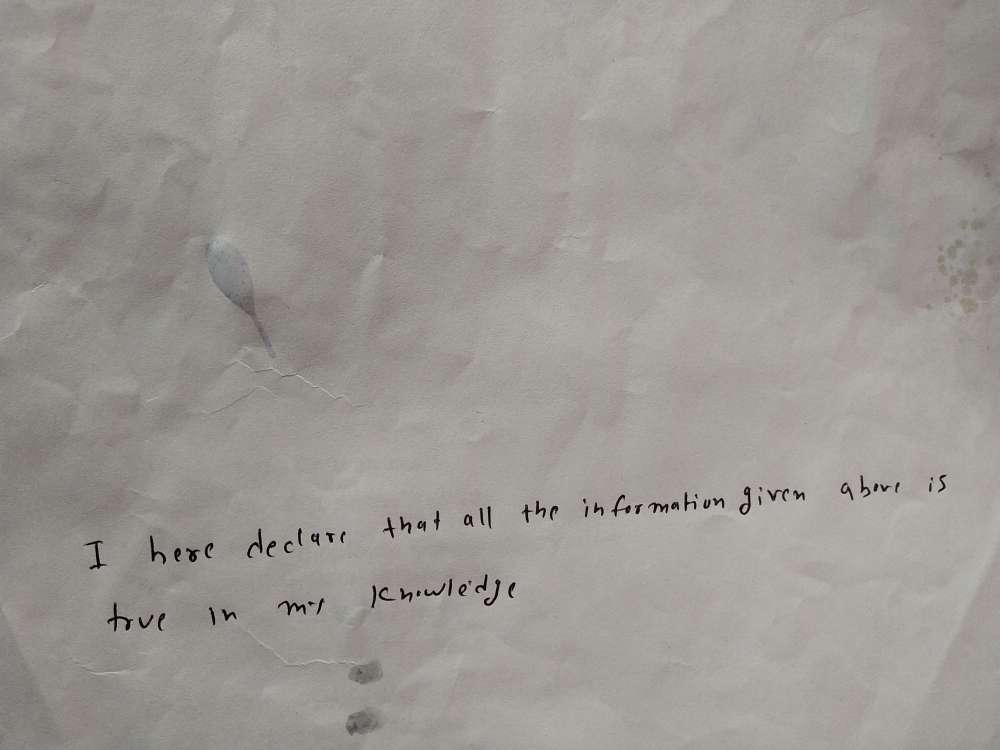 I here declare that all the information given above is
true in my knowledge